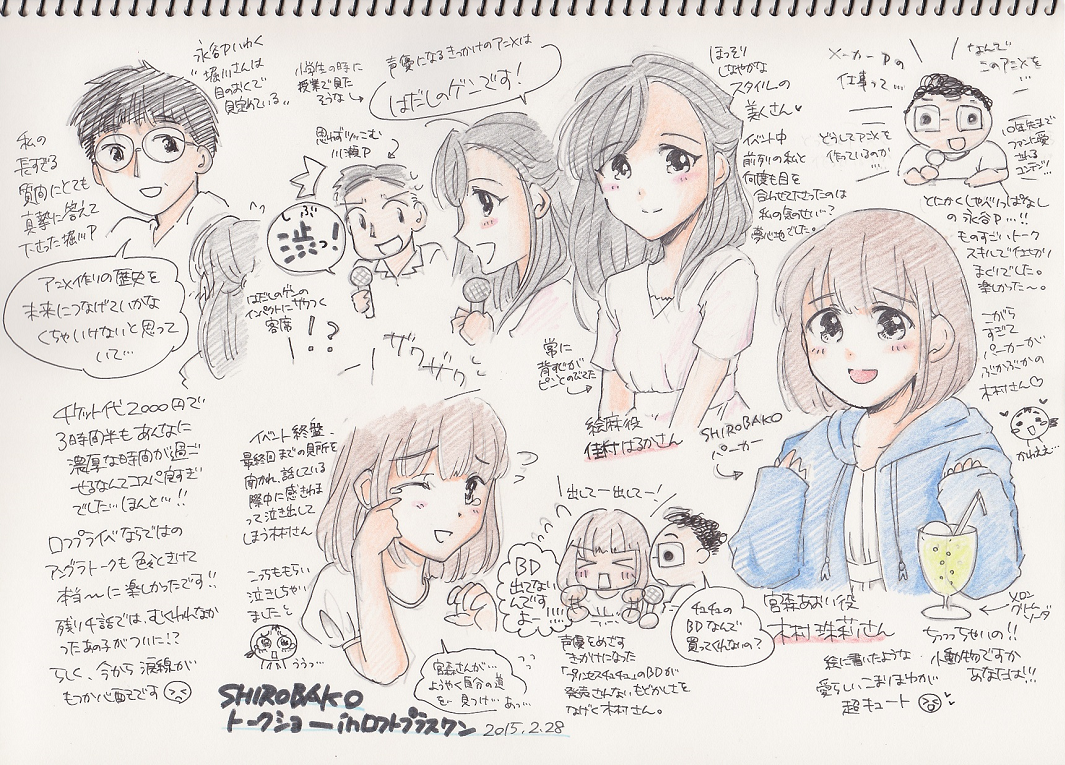 永谷Pいわく
"堀川さんは
目のおくで
見定めている"
私の
長すぎる
質問にとても
真摯に答えて
下さった堀川P
アニメ作りの歴史を
未来につなげていかな
くちゃいけないと思って
いて…
小学生の時に
授業で見た
そうな
声優になるきっかけのアニメは
はだしのゲンです!
思わずツッこむ
川瀬P
しぶ
渋っ!
はだしのゲンの
インパクトにざわつく
客席
!?
ザワザワ
ほっそり
しなやかな
スタイルの
美人さん
イベント中
前列の私と
何度も目を
合わせて下さったのは
私の気のせい?
夢心地でした。
常に
背すじが
ピンとのびてた
絵麻役
佳村はるかさん
メーカーPの
仕事って…
どうしてアニメを
作っているのか
…
なんで
このアニメを
…
10年先まで
ファンに愛
される
コンテンツ
とにかくしゃべりっぱなし
の永谷P…!!
ものすごいトーク
スキルで仕切り
まくりでした。
楽しかった〜。
こがら
すぎて
パーカーが
ぶかぶかの
木村さん♡
かわええ…
SHIROBAKO
パーカー
宮森あおい役
木村珠莉さん
絵に書いたような
愛らしいこまりまゆが
超キュート
メロン
クリーム
ソーダ
ちっっちゃいの!!
小動物ですか
あなたは!!
チケット代2000円で
3時間半もあんなに
濃厚な時間が過ご
せるなんてコスパ良すぎ
でした…ほんと…!!
ロフプライベならではの
アングラトークも色々ときけて
本当〜に楽しかったです!!
残り4話では、むくわれなか
ったあの子がついに!?
らしく、今から涙線が
もつか心配です
イベント終盤、
最終回までの見所を
聞かれ、話している
際中に感きわま
って泣き出して
しまう木村さん
こっちももらい
泣きしちゃい
ましたと
ううっ…
宮森さんが…
ようやく自分の道
を…見つけ…あっ…
出してー出してー!
BD
出てない
んです
よー!!!!
チュチュの
BDなんで
買ってくんないの?
声優をめざす
きっかけになった
「プリンセスチュチュ」のBDが
発売されないもどかしさを
なげく木村さん。
SHIROBAKO
トークショーinロフトプラスワン 2015.2.28